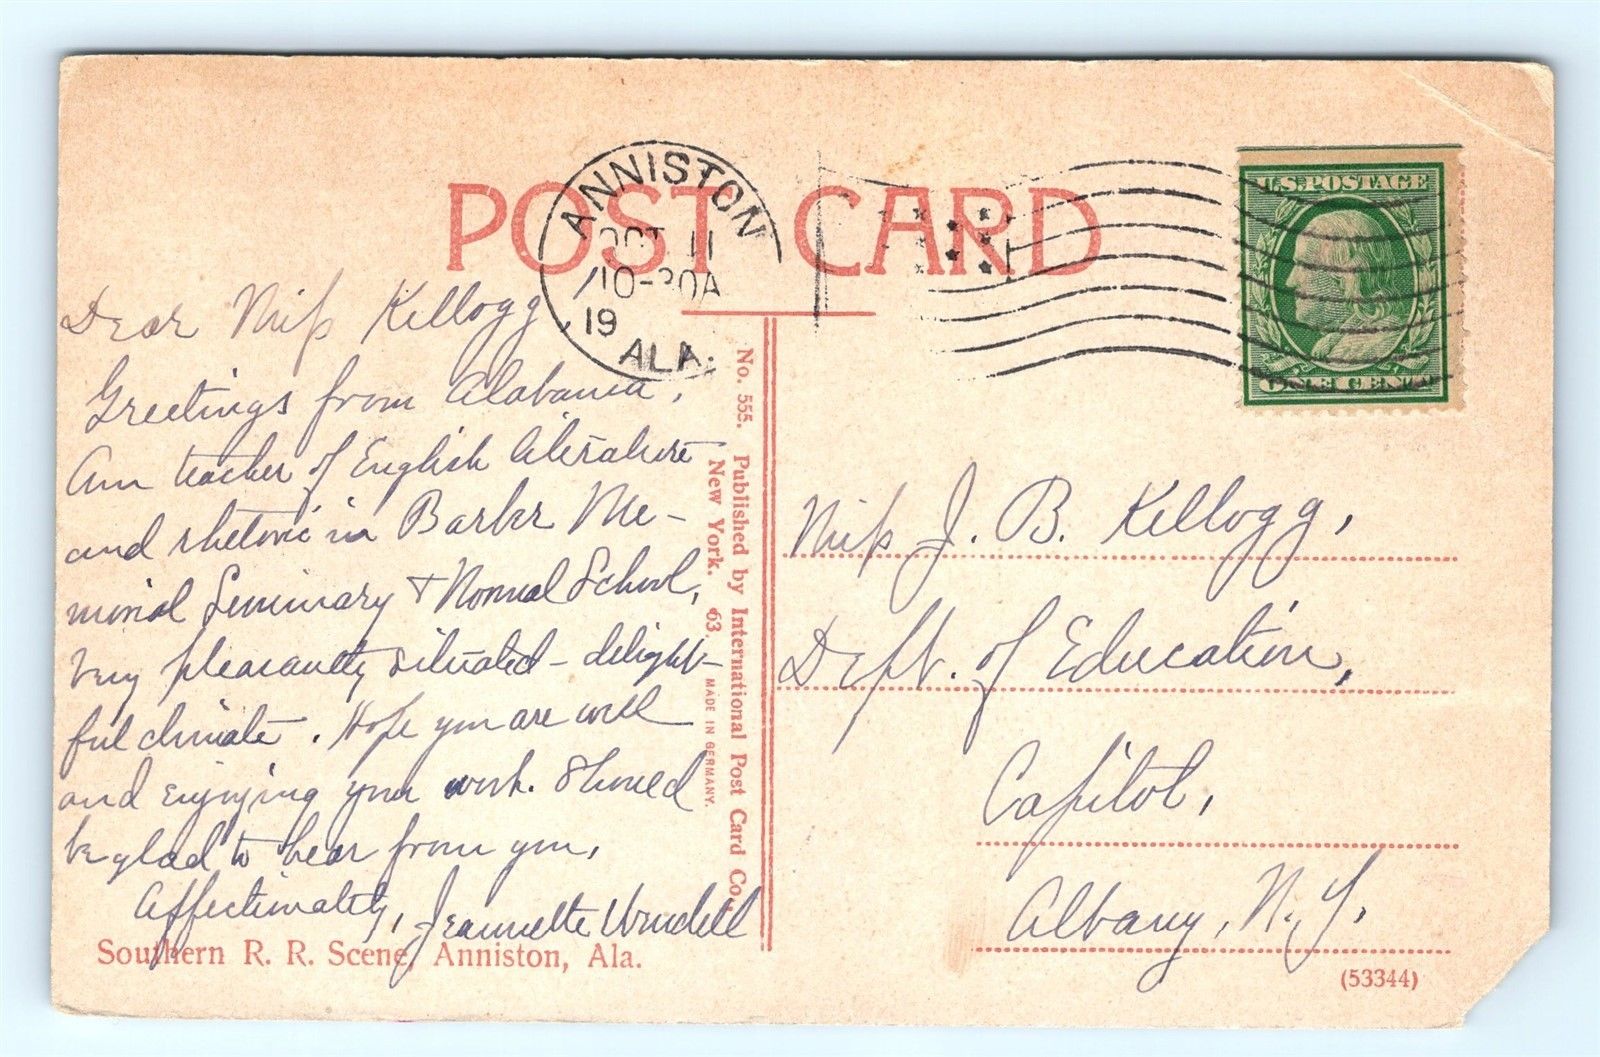 POST CARD
ANNISTON
OCT 11
10-30A
19
ALA.
U.S. POSTAGE
ONE CENT
Dear Miss Kellogg
Greetings from Alabama,
Am teacher of English literature
and rhetoric in Barber Me-
morial Seminary & Normal School,
Very pleasantly situated - delight-
ful climate. Hope you are well
and enjoying your work. Should
be glad to hear from you,
Affectionately, Jeannette Wendell
Southern R. R. Scene, Anniston, Ala.
No. 555. Published by International Post Card Co.,
New York. 63. MADE IN GERMANY.
Miss J. B. Kellogg,
Dept. of Education,
Capitol,
Albany, N. Y.
(53344)